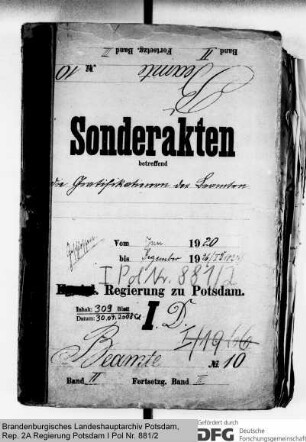 Band II Fortsetzg. Band III
Beamte № 10
Sonderakten
betreffend
die Gratifikationen der Beamten
Geschlossen
Vom Juni 1920
bis Dezember 1926
I Pol Nr. 881/2
Regierung zu Potsdam.
Inhalt: 309 Blatt
Datum: 30.09.2008
I D.
Beamte № 10
Band II Fortsetzg. Band III
Brandenburgisches Landeshauptarchiv Potsdam,
Rep. 2A Regierung Potsdam I Pol Nr. 881/2
Gefördert durch
DFG Deutsche
Forschungsgemeinschaft